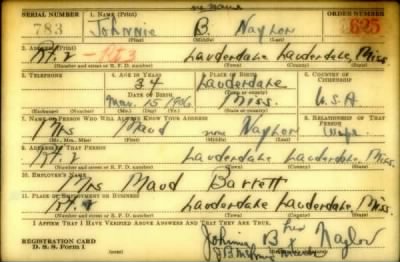 no name
SERIAL NUMBER 1. NAME (Print) ORDER NUMBER
783 Johnnie B. Naylor 625
(First) (Middle) (Last)
2. ADDRESS (Print)
Rt. 2 Rt 3 Lauderdale Lauderdale, Miss.
(Number and street or R. F. D. number) (Town) (County) (State)
3. TELEPHONE 4. AGE IN YEARS 5. PLACE OF BIRTH 6. COUNTRY OF CITIZENSHIP
34 Lauderdale
DATE OF BIRTH (Town or county)
Mar. 15 1906 Miss. U.S.A
(Exchange) (Number) (Mo.) (Day) (Yr.) (State or country)
7. NAME OF PERSON WHO WILL ALWAYS KNOW YOUR ADDRESS 8. RELATIONSHIP OF THAT PERSON
Mrs Maud none Naylor Wife
(Mr., Mrs., Miss) (First) (Middle) (Last)
9. ADDRESS OF THAT PERSON
Rt. 2 Lauderdale Lauderdale, Miss.
(Number and street or R. F. D. number) (Town) (County) (State)
10. EMPLOYER'S NAME
Mrs Maud Barrett
11. PLACE OF EMPLOYMENT OR BUSINESS
Rt. Lauderdale Lauderdale Miss.
(Number and street or R. F. D. number) (Town) (County) (State)
I AFFIRM THAT I HAVE VERIFIED ABOVE ANSWERS AND THAT THEY ARE TRUE.
REGISTRATION CARD
D. S. S. Form 1
Johnnie B Naylor